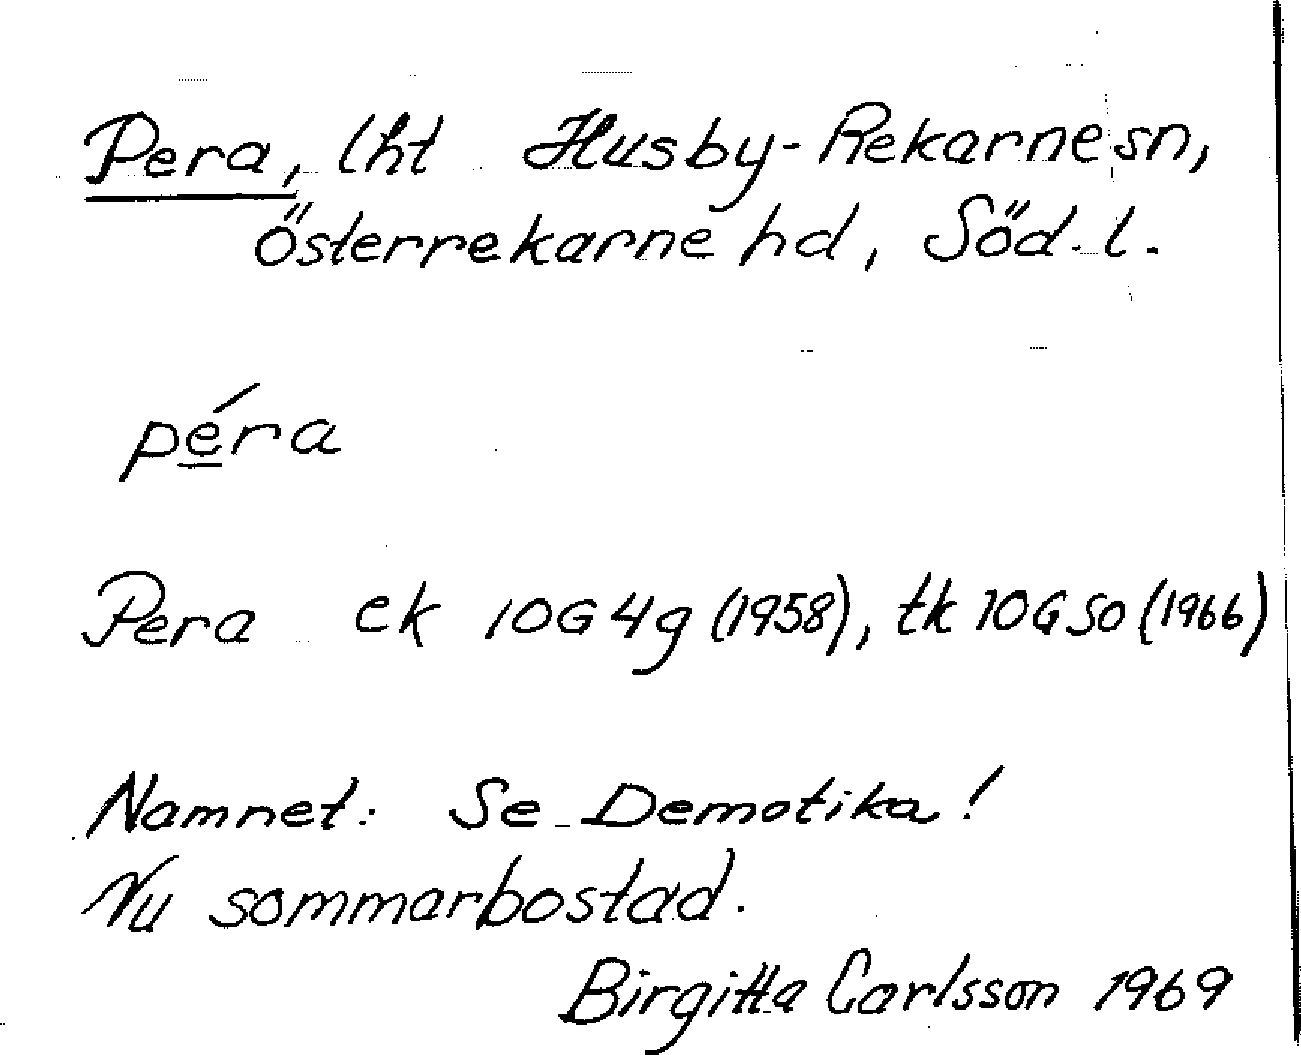 Pera, lht Husby-Rekarne sn,
Österrekarne hd, Söd. l.
péra
Pera ek 10G 4g (1958), tk 10G SO (1966)
Namnet: Se Demotika!
Nu sommarbostad.
Birgitta Carlsson 1969